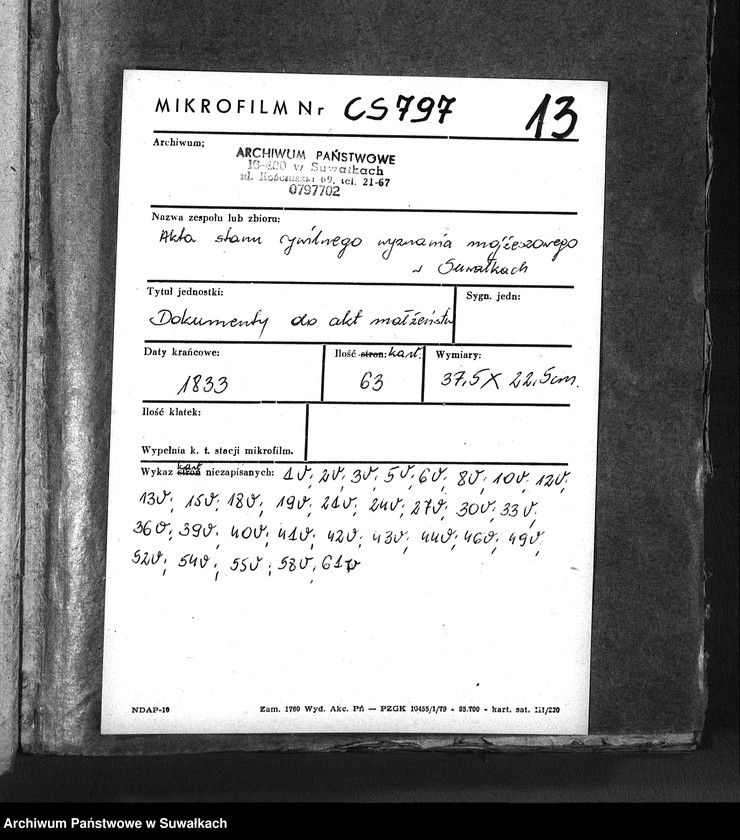 MIKROFILM Nr CS797 13
Archiwum;
ARCHIWUM PAŃSTWOWE
16-400 w Suwałkach
ul. Kościuszki 69, tel. 21-67
0797702
Nazwa zespołu lub zbioru:
Akta stanu cywilnego wyznania mojżeszowego
w Suwałkach
Tytuł jednostki: Sygn. jedn:
Dokumenty do akt małżeństw
Daty krańcowe: Ilość stron: kart. Wymiary:
1833 63 37,5 X 22,5cm.
Ilość klatek:
Wypełnia k. t. stacji mikrofilm.
Wykaz stron kart niezapisanych: 1v; 2v; 3v; 5v; 6v; 8v; 10v; 12v;
13v; 15v; 18v; 19v; 21v; 24v; 27v; 30v; 33v;
36v; 39v; 40v; 41v; 42v; 43v; 44v; 46v; 49v;
52v; 54v; 55v; 58v; 61v
NDAP-10 Zam. 1760 Wyd. Akc. Pń — PZGK 10455/I/79 - 85.700 - kart. sat. III/220
Archiwum Państwowe w Suwałkach